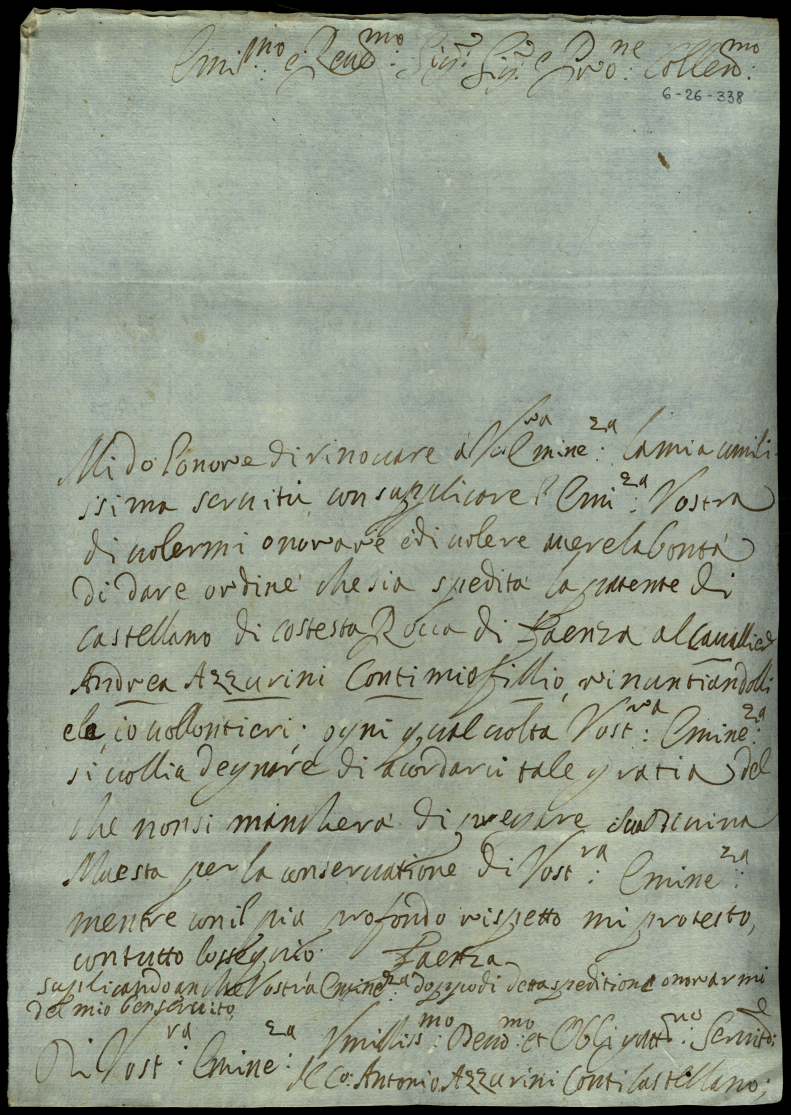 Emi.mo e Reud.mo Sig.r Sig.r e Pro.ne Collen.mo
6-26-338
Mi dò l'onore di rinouare à V.ra Emine.za la mia umili-
ssima seruitù, con supplicare l'Emi.za Vostra
di uolermi onorare e di uolere auere la bontà
di dare ordine che sia spedita la patente di
Castellano di cotesta Rocca di Faenza al Caualliere
Andrea Azzurini Conti mio fillio, rinuntiandolli
ela io uollontieri; ogni qual uolta Vost.ra Emine.za
si uollia degnare di acordarci tale gratia del
che non si mancherà di pregare sua Diuina
Maesta per la conseruatione di Vost.ra Emine.za
mentre con il più profondo rispetto mi protesto,
con tutto l'ossequio. Faenza
suplicando anche Vostra Emine.za doppo di detta speditione onorarmi
del mio benseruito,
Di Vost.ra Emine.za Vmiliss.mo Deuo.mo et Obligatt.mo Seruito.e
Il Co: Antonio Azzurini Conti Castellano;